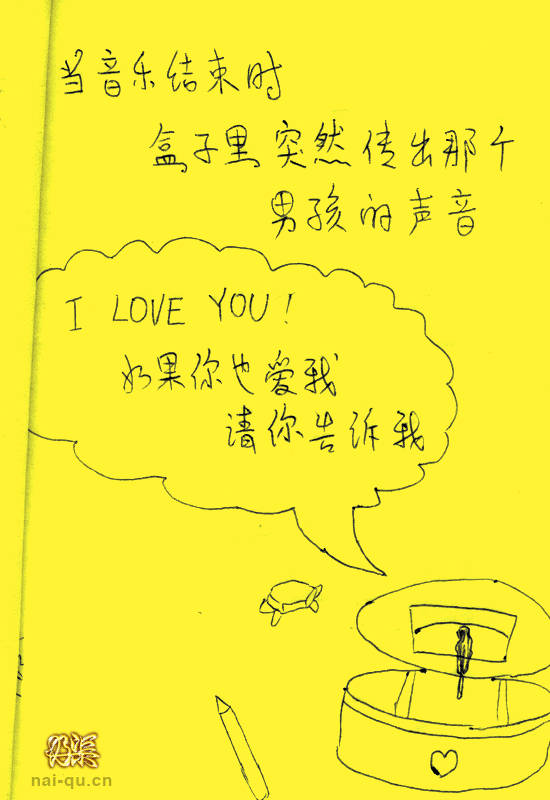 当音乐结束时
盒子里突然传出那个
男孩的声音
I LOVE YOU!
如果你也爱我
请你告诉我
nai-qu.cn